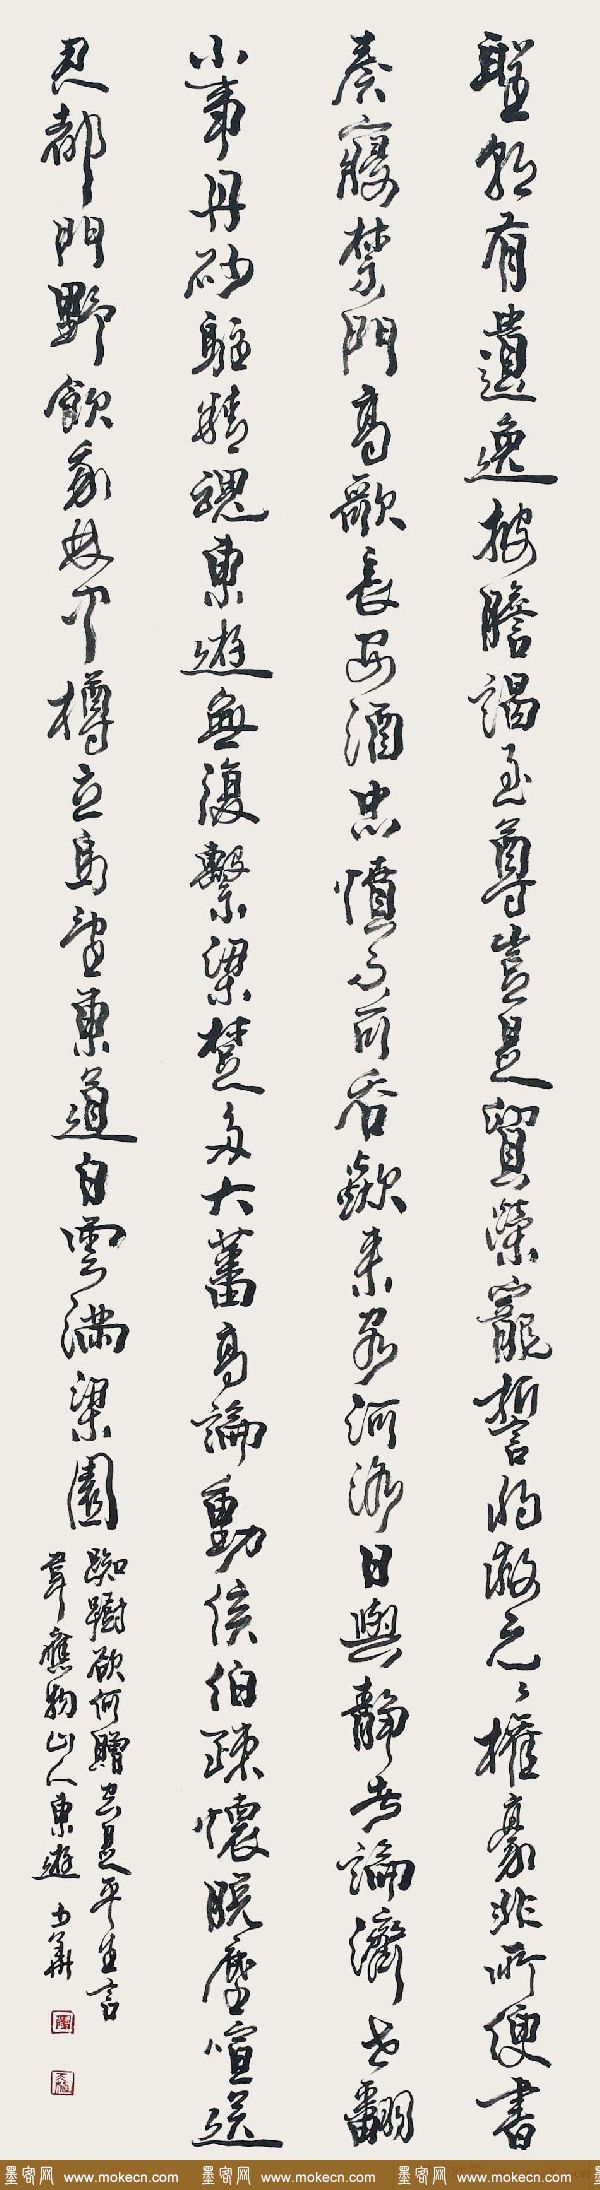 聖朝有遺逸披膽謁至尊豈是貿榮寵誓將救元〻權豪非所便書
奏寢禁門高歌長安酒忠憤不可吞欻來客河洛日與靜者論濟世翻
小事丹砂駐精魂東遊無復繫梁楚多大蕃高論動侯伯疎懷脫塵喧送
君都門野飲我林中樽立馬望東道白雲滿梁園
踟躕欲何贈空是平生言
韋應物山人東遊
墨客网 www.mokecn.com 墨客网 www.mokecn.com 墨客网 www.mokecn.com